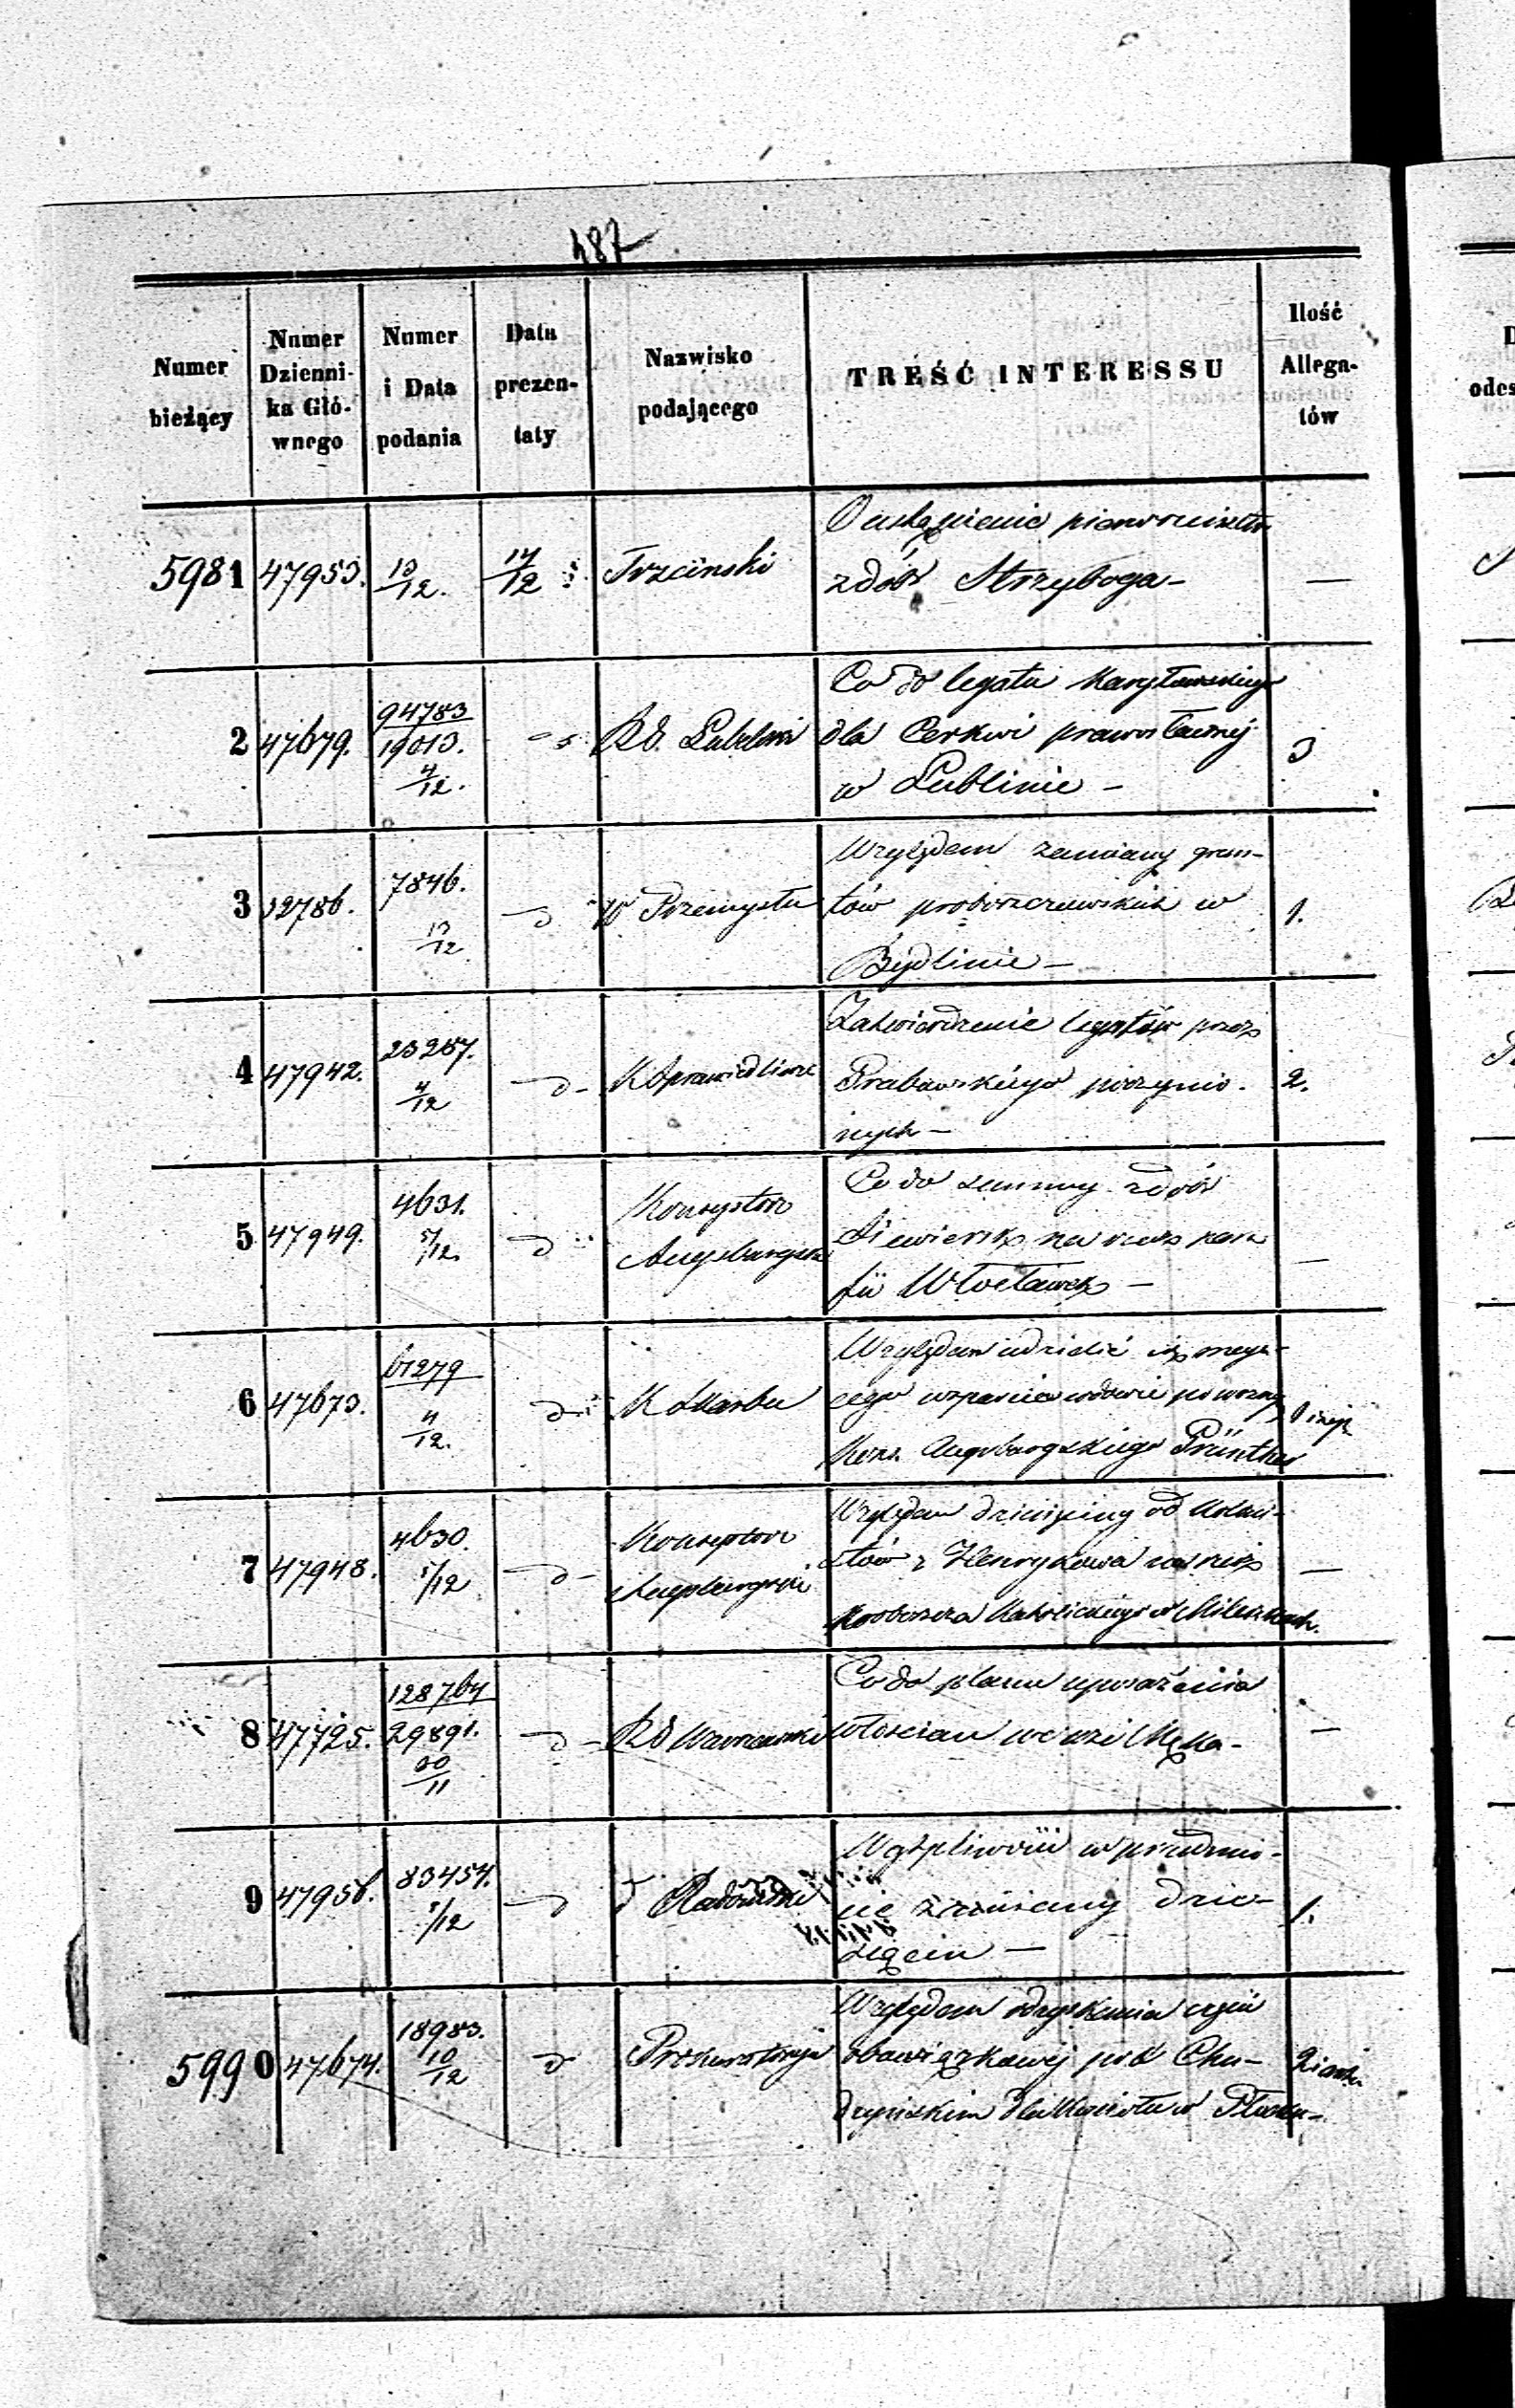 487
Numer bieżący
Numer Dzienni- ka Głó- wnego
Numer i Data podania
Data prezen- taty
Nazwisko podającego
TREŚĆ INTERESSU
Ilość Allega- tów
5981 47953. 13/12. 14/12 Trzcinski
O ustąpienie pierwszeństwa
z dóbr Strzyboga —
2 47679. 94783/19013. 4/12. Rd. Lubelski
Co do legatu
dla Cerkwi prawosławnej 3
w Lublinie —
3 12786. 7846. 13/12 d W Przemysłu
Względem zamiany grun-
tów proboszczewskich w 1.
Bydlinie —
4 47942. 23257. 4/12 d - K Sprawiedliwoś
Zatwierdzenie legatów przez
Grabowskiego poczynio- 2.
nych —
5 47949. 4631. 5/12. d Konsystorz Augsburgski
Co do summy z dóbr
Siewiersk na rzecz para
fii Włocławek — —
6 47673. 61279 4/12. d K Skarbu
Względem
cego wsparcia wdowie po woznym
Kons. Augsburgskiego Prünther
7 47948. 4630. 5/12 d - Konsystorz Augsburgski
Względem dziesięciny od Koloni-
stów z Henrykowa na rzecz —
Proboszcza Katolickiego w Mileszkach.
8 47725. 128764/29891. 30/11 d - Rd Warszawski
Co do planu uposażenia
włościan we wsi Męka — —
9 47956. 83454. 5/12 d Radomski
Wątpliwości w przedmio-
cie zamiany dzie- 1.
sięcin —
5990 47674. 18983. 10/12 d Prokuratorya
Względem odzyskania części
obowiązkowej po X Chu-
dzyńskim dla Kościoła w Płocku —